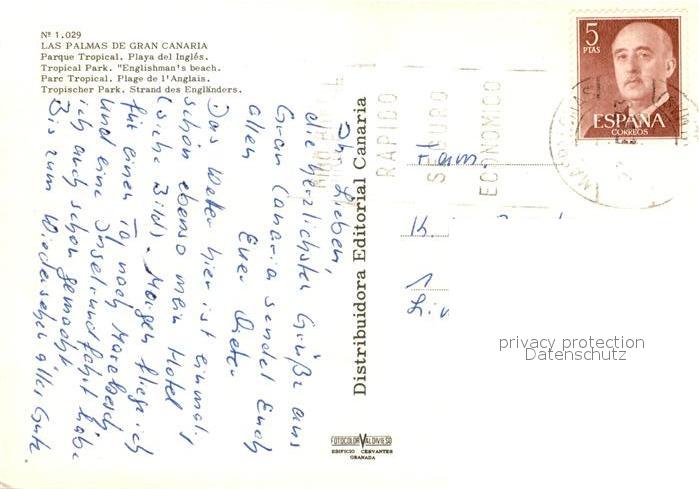 Nº 1.029
LAS PALMAS DE GRAN CANARIA
Parque Tropical. Playa del Inglés.
Tropical Park. "Englishman's beach.
Parc Tropical. Plage de l'Anglais.
Tropischer Park. Strand des Engländers.
Ihr Lieben,
die herzlichsten Grüße aus
Gran Canaria sendet Euch
allen Euer Dieter
Das Wetter hier ist einmalig
schön ebenso mein Hotel
(siehe Bild). Morgen fliege ich
für einen Tag nach Marakesch
und eine Inselrundfahrt habe
ich auch schon gemacht.
Bis zum Wiedersehen alles Gute
Distribuidora Editorial Canaria
RAPIDO
SEGURO
ECONOMICO
5
PTAS
ESPAÑA
CORREOS
Fam.
FOTOCOLOR VALDIVIESO
EDIFICIO CERVANTES
GRANADA
privacy protection
Datenschutz